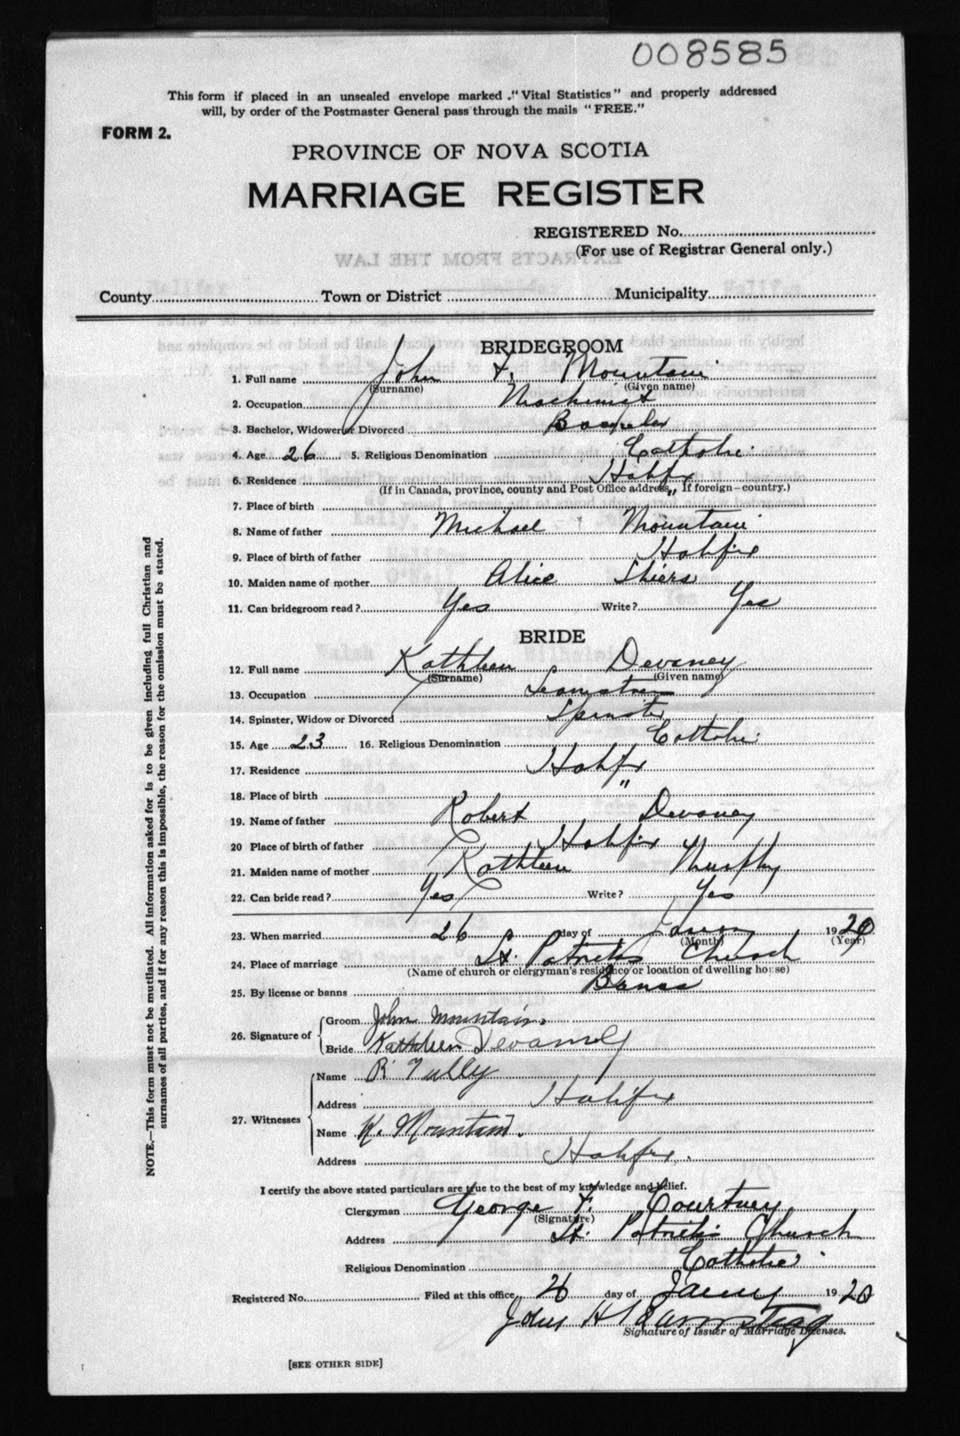 008585
This form if placed in an unsealed envelope marked "Vital Statistics" and properly addressed
will, by order of the Postmaster General pass through the mails "FREE."
FORM 2.
PROVINCE OF NOVA SCOTIA
MARRIAGE REGISTER
REGISTERED No.
(For use of Registrar General only.)
EXTRACTS FROM THE LAW
County Town or District Municipality
BRIDEGROOM
1. Full name John F. Mountain
(Surname) (Given name)
2. Occupation Machinist
3. Bachelor, Widower or Divorced Bachelor
4. Age 26 5. Religious Denomination Catholic
6. Residence Halifx
(If in Canada, province, county and Post Office address, If foreign—country.)
7. Place of birth "
8. Name of father Michael Mountain
9. Place of birth of father Halifx
10. Maiden name of mother Alice Shiers
11. Can bridegroom read? Yes Write? Yes
BRIDE
12. Full name Kathleen Devaney
(Surname) (Given name)
13. Occupation Seamstress
14. Spinster, Widow or Divorced Spinster
15. Age 23 16. Religious Denomination Catholic
17. Residence Halifx
18. Place of birth "
19. Name of father Robert Devaney
20 Place of birth of father Halifx
21. Maiden name of mother Kathleen Murphy
22. Can bride read? Yes Write? Yes
23. When married 26 day of 1920
(Month) (Year)
24. Place of marriage St. Patricks Church
(Name of church or clergyman's residence or location of dwelling house)
25. By license or banns Banns
26. Signature of Groom John Mountain.
Bride Kathleen Devaney
27. Witnesses Name R. Tully
Address Halifx
Name Mountain.
Address Halifx.
I certify the above stated particulars are true to the best of my knowledge and belief.
Clergyman George F. Courtney
(Signature)
Address St. Patricks Church
Religious Denomination Catholic
Registered No. Filed at this office 26 day of 1920
John H
Signature of Issuer of Marriage Licenses.
[SEE OTHER SIDE]
NOTE.—This form must not be mutilated. All information asked for is to be given including full Christian and
surnames of all parties, and if for any reason this is impossible, the reason for the omission must be stated.